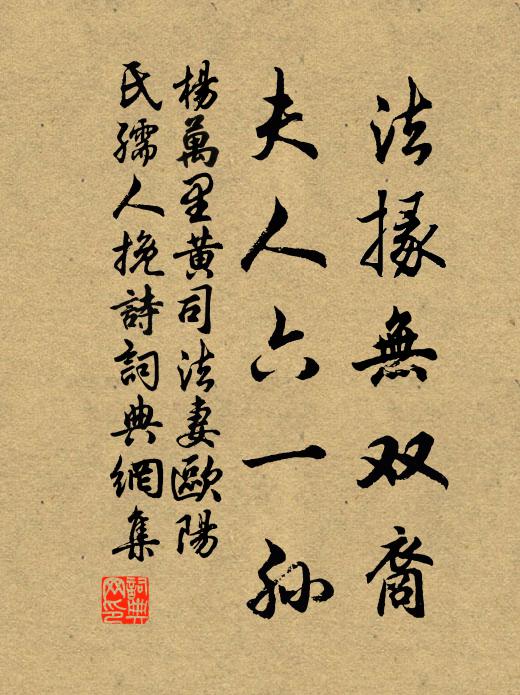 法掾無双裔
夫人六一孙
楊萬里黄司法妻歐陽
氏孺人挽詩詞典網集
詞典
网印